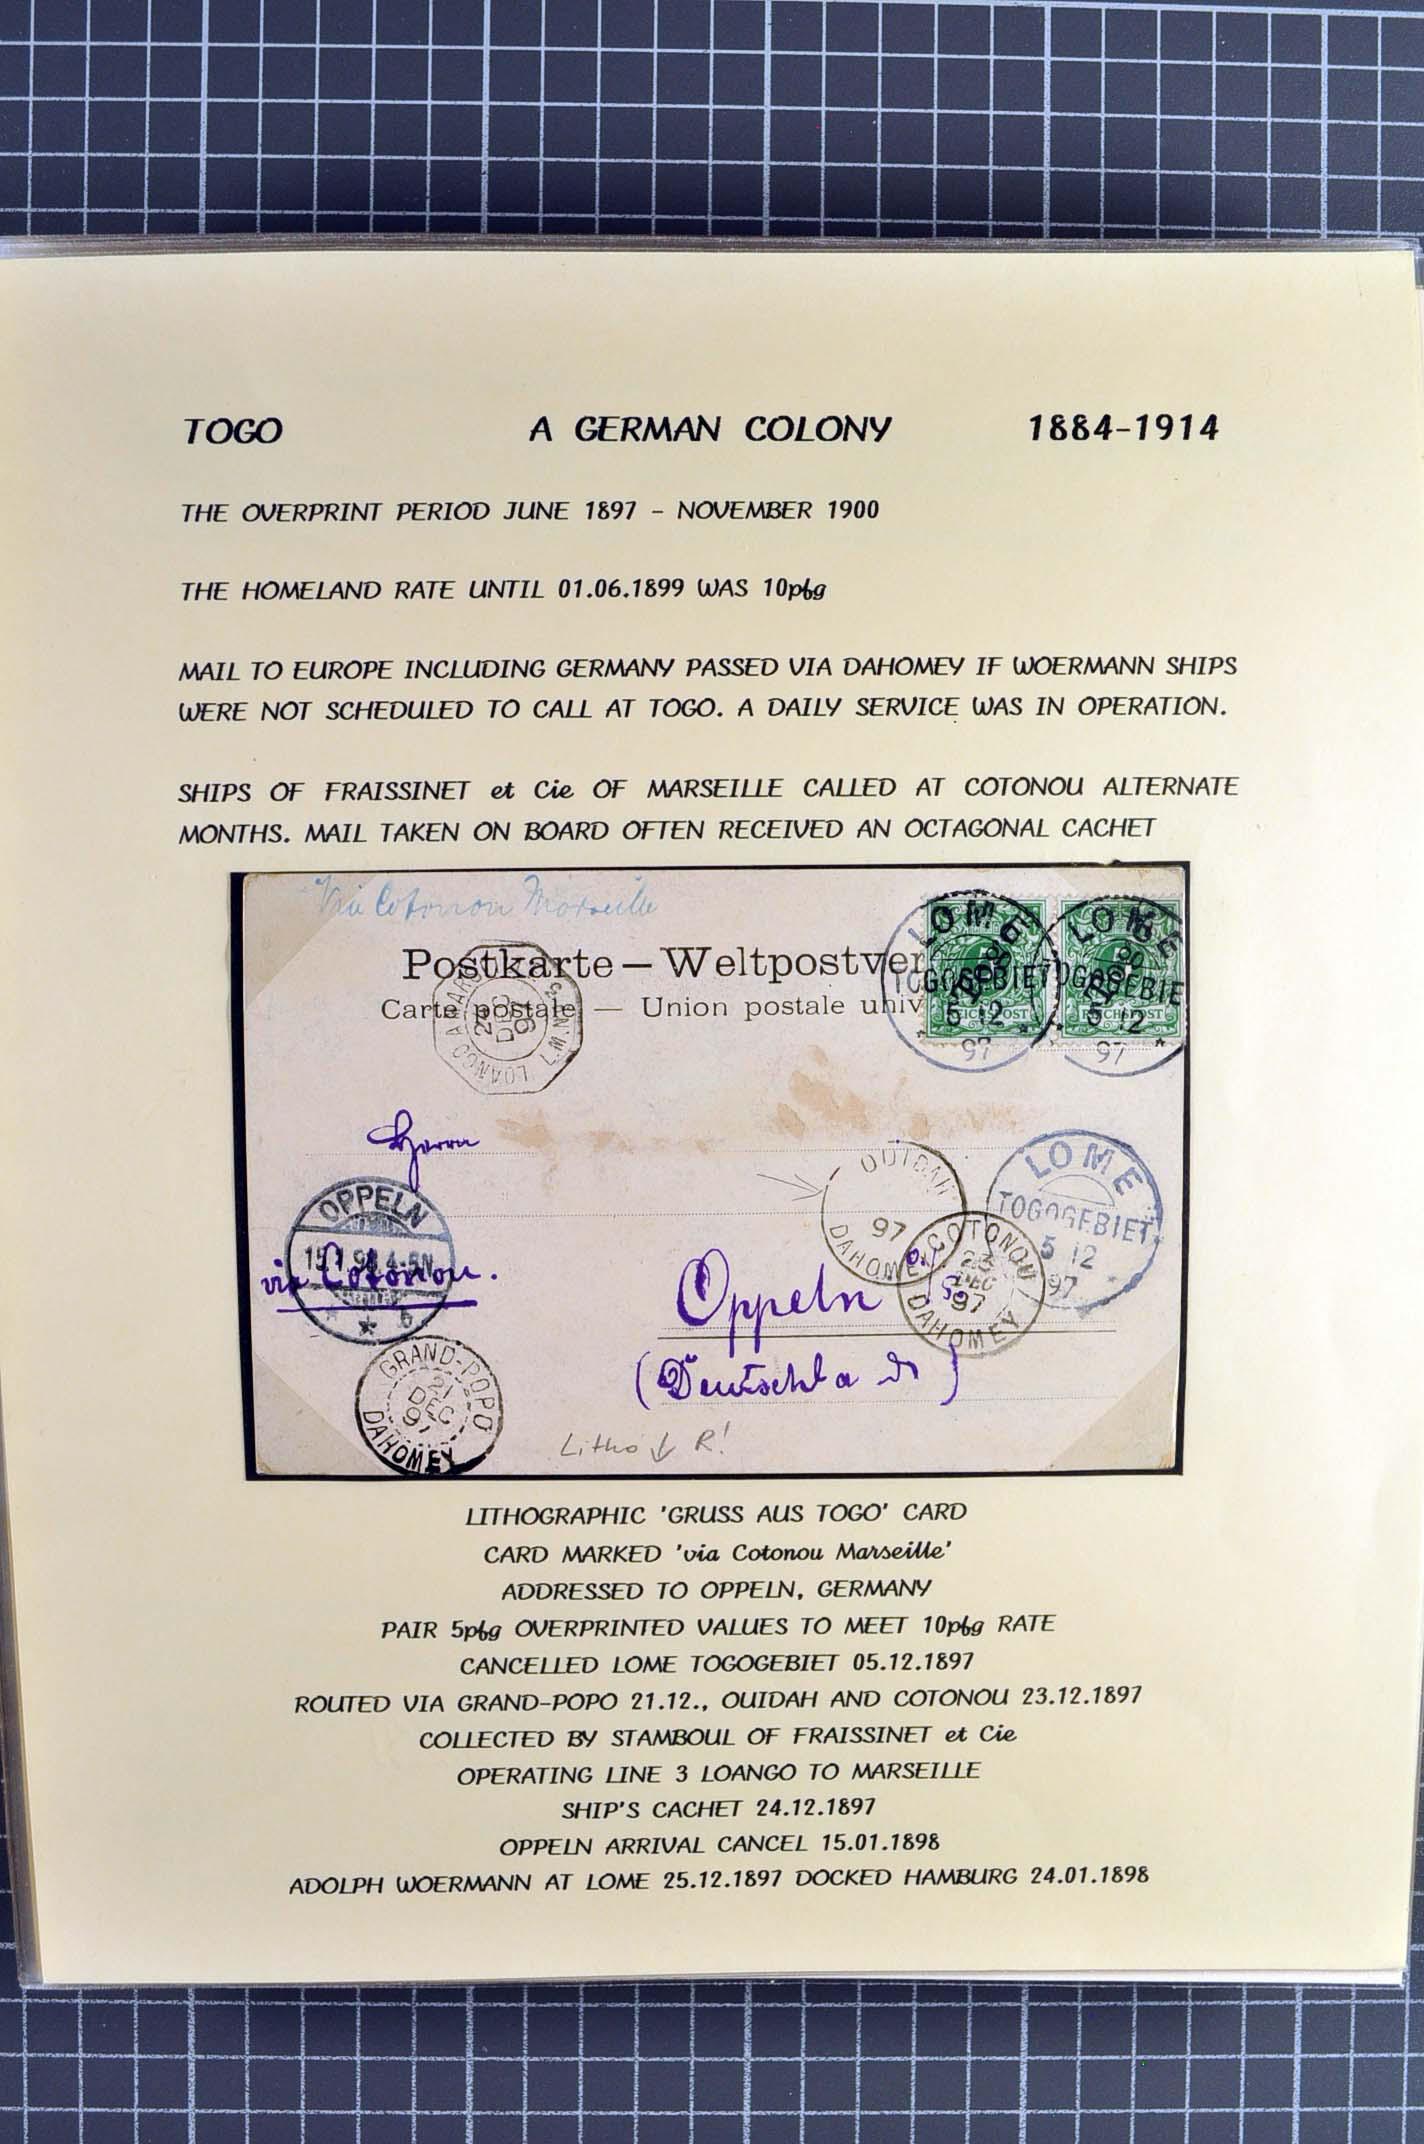 TOGO A GERMAN COLONY 1884-1914
THE OVERPRINT PERIOD JUNE 1897 - NOVEMBER 1900
THE HOMELAND RATE UNTIL 01.06.1899 WAS 10pfg
MAIL TO EUROPE INCLUDING GERMANY PASSED VIA DAHOMEY IF WOERMANN SHIPS
WERE NOT SCHEDULED TO CALL AT TOGO. A DAILY SERVICE WAS IN OPERATION.
SHIPS OF FRAISSINET et Cie OF MARSEILLE CALLED AT COTONOU ALTERNATE
MONTHS. MAIL TAKEN ON BOARD OFTEN RECEIVED AN OCTAGONAL CACHET
Via Cotonou Marseille
Postkarte – Weltpostver
Carte postale — Union postale univ
LOME
TOGOGEBIET
5 12
97
LOME
TOGOGEBIET
5 12
97
REICHSPOST
REICHSPOST
LOANGO
DEC
97
L.N.
Herrn
OPPELN
15.1.98.4-5N
* * b
via Cotonou.
OUIDAH
97
DAHOMEY
LOME
TOGOGEBIET
5 12
97
COTONOU
23
DEC
97
DAHOMEY
Oppeln
(Deutschland)
GRAND-POPO
21
DEC
97
DAHOMEY
Litho ↓ R!
LITHOGRAPHIC 'GRUSS AUS TOGO' CARD
CARD MARKED 'via Cotonou Marseille'
ADDRESSED TO OPPELN, GERMANY
PAIR 5pfg OVERPRINTED VALUES TO MEET 10pfg RATE
CANCELLED LOME TOGOGEBIET 05.12.1897
ROUTED VIA GRAND-POPO 21.12., OUIDAH AND COTONOU 23.12.1897
COLLECTED BY STAMBOUL OF FRAISSINET et Cie
OPERATING LINE 3 LOANGO TO MARSEILLE
SHIP'S CACHET 24.12.1897
OPPELN ARRIVAL CANCEL 15.01.1898
ADOLPH WOERMANN AT LOME 25.12.1897 DOCKED HAMBURG 24.01.1898